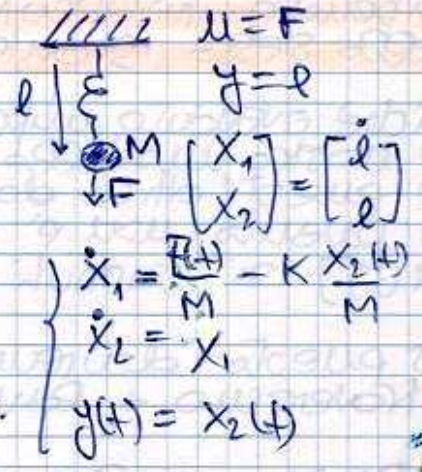 u = F
l
y = l
M
F
[X₁ X₂] = [l̇ l]
Ẋ₁ = F(t)/M - K X₂(t)/M
Ẋ₂ = X₁
y(t) = X₂(t)